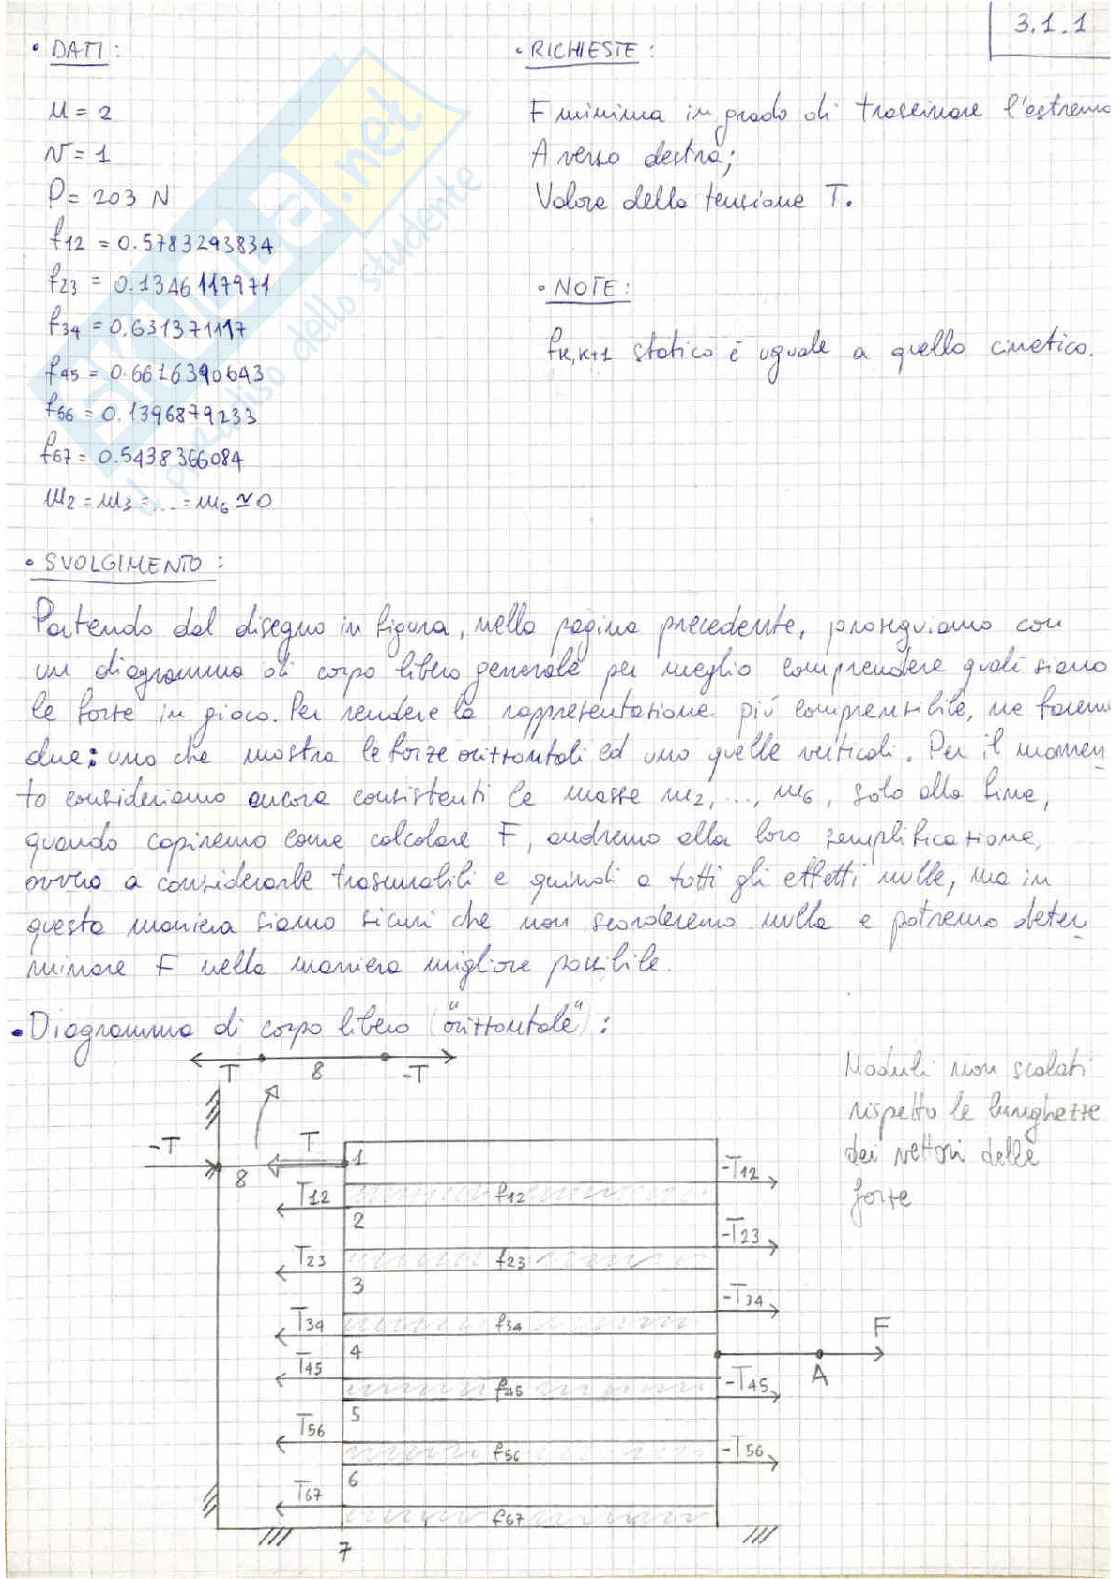 3.1.1
• DATI:
M = 2
N = 1
P = 203 N
f12 = 0.5783293834
f23 = 0.1346117971
f34 = 0.631371117
f45 = 0.6616390643
f56 = 0.1396879233
f67 = 0.5438366084
m2 = m3 = ... = m6 ≃ 0
• RICHIESTE:
F minima in grado di trascinare l'estremo
A verso destra;
Valore della tensione T.
• NOTE:
fk,k+1 statico è uguale a quello cinetico.
• SVOLGIMENTO:
Partendo dal disegno in figura, nella pagina precedente, proseguiamo con
un diagramma di corpo libero generale per meglio comprendere quali siano
le forze in gioco. Per rendere la rappresentazione più comprensibile, ne faremo
due: uno che mostra le forze orizzontali ed uno quelle verticali. Per il momen-
to consideriamo ancora consistenti le masse m2, ..., m6, solo alla fine,
quando capiremo come calcolare F, andremo alla loro semplificazione,
ovvero a considerarle trascurabili e quindi a tutti gli effetti nulle, ma in
questa maniera siamo sicuri che non scorderemo nulla e potremo deter-
minare F nella maniera migliore possibile.
• Diagramma di corpo libero ("orizzontale"):
T 8 -T
Moduli non scalati
rispetto le lunghezze
dei vettori delle
forze
-T T
8 1 -T12
T12 f12
2
-T23
T23 f23
3
-T34
T34 f34
F
4
T45 f45 -T45 A
5
T56 -T56
f56
6
T67
f67
7
SKUOLA.net
il paradiso dello studente